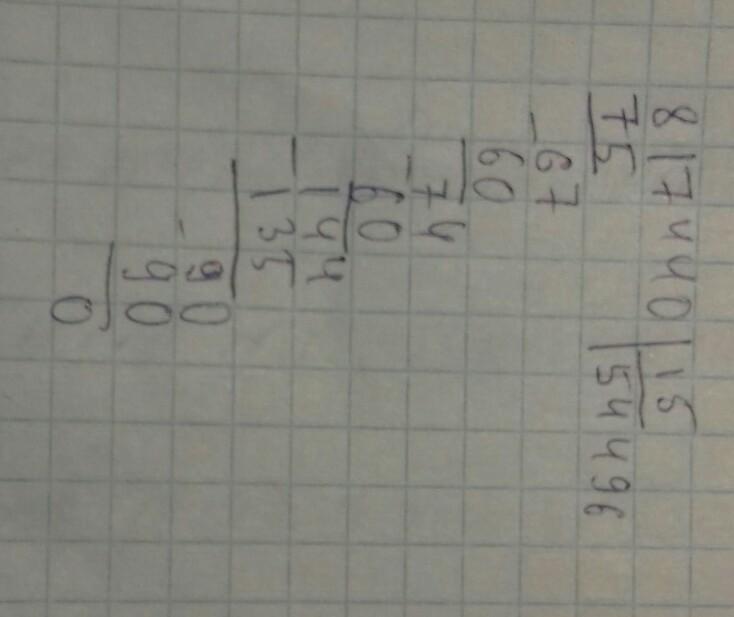 817440 | 15
75 | 54496
- 67
60
- 74
60
- 144
135
- 90
90
0